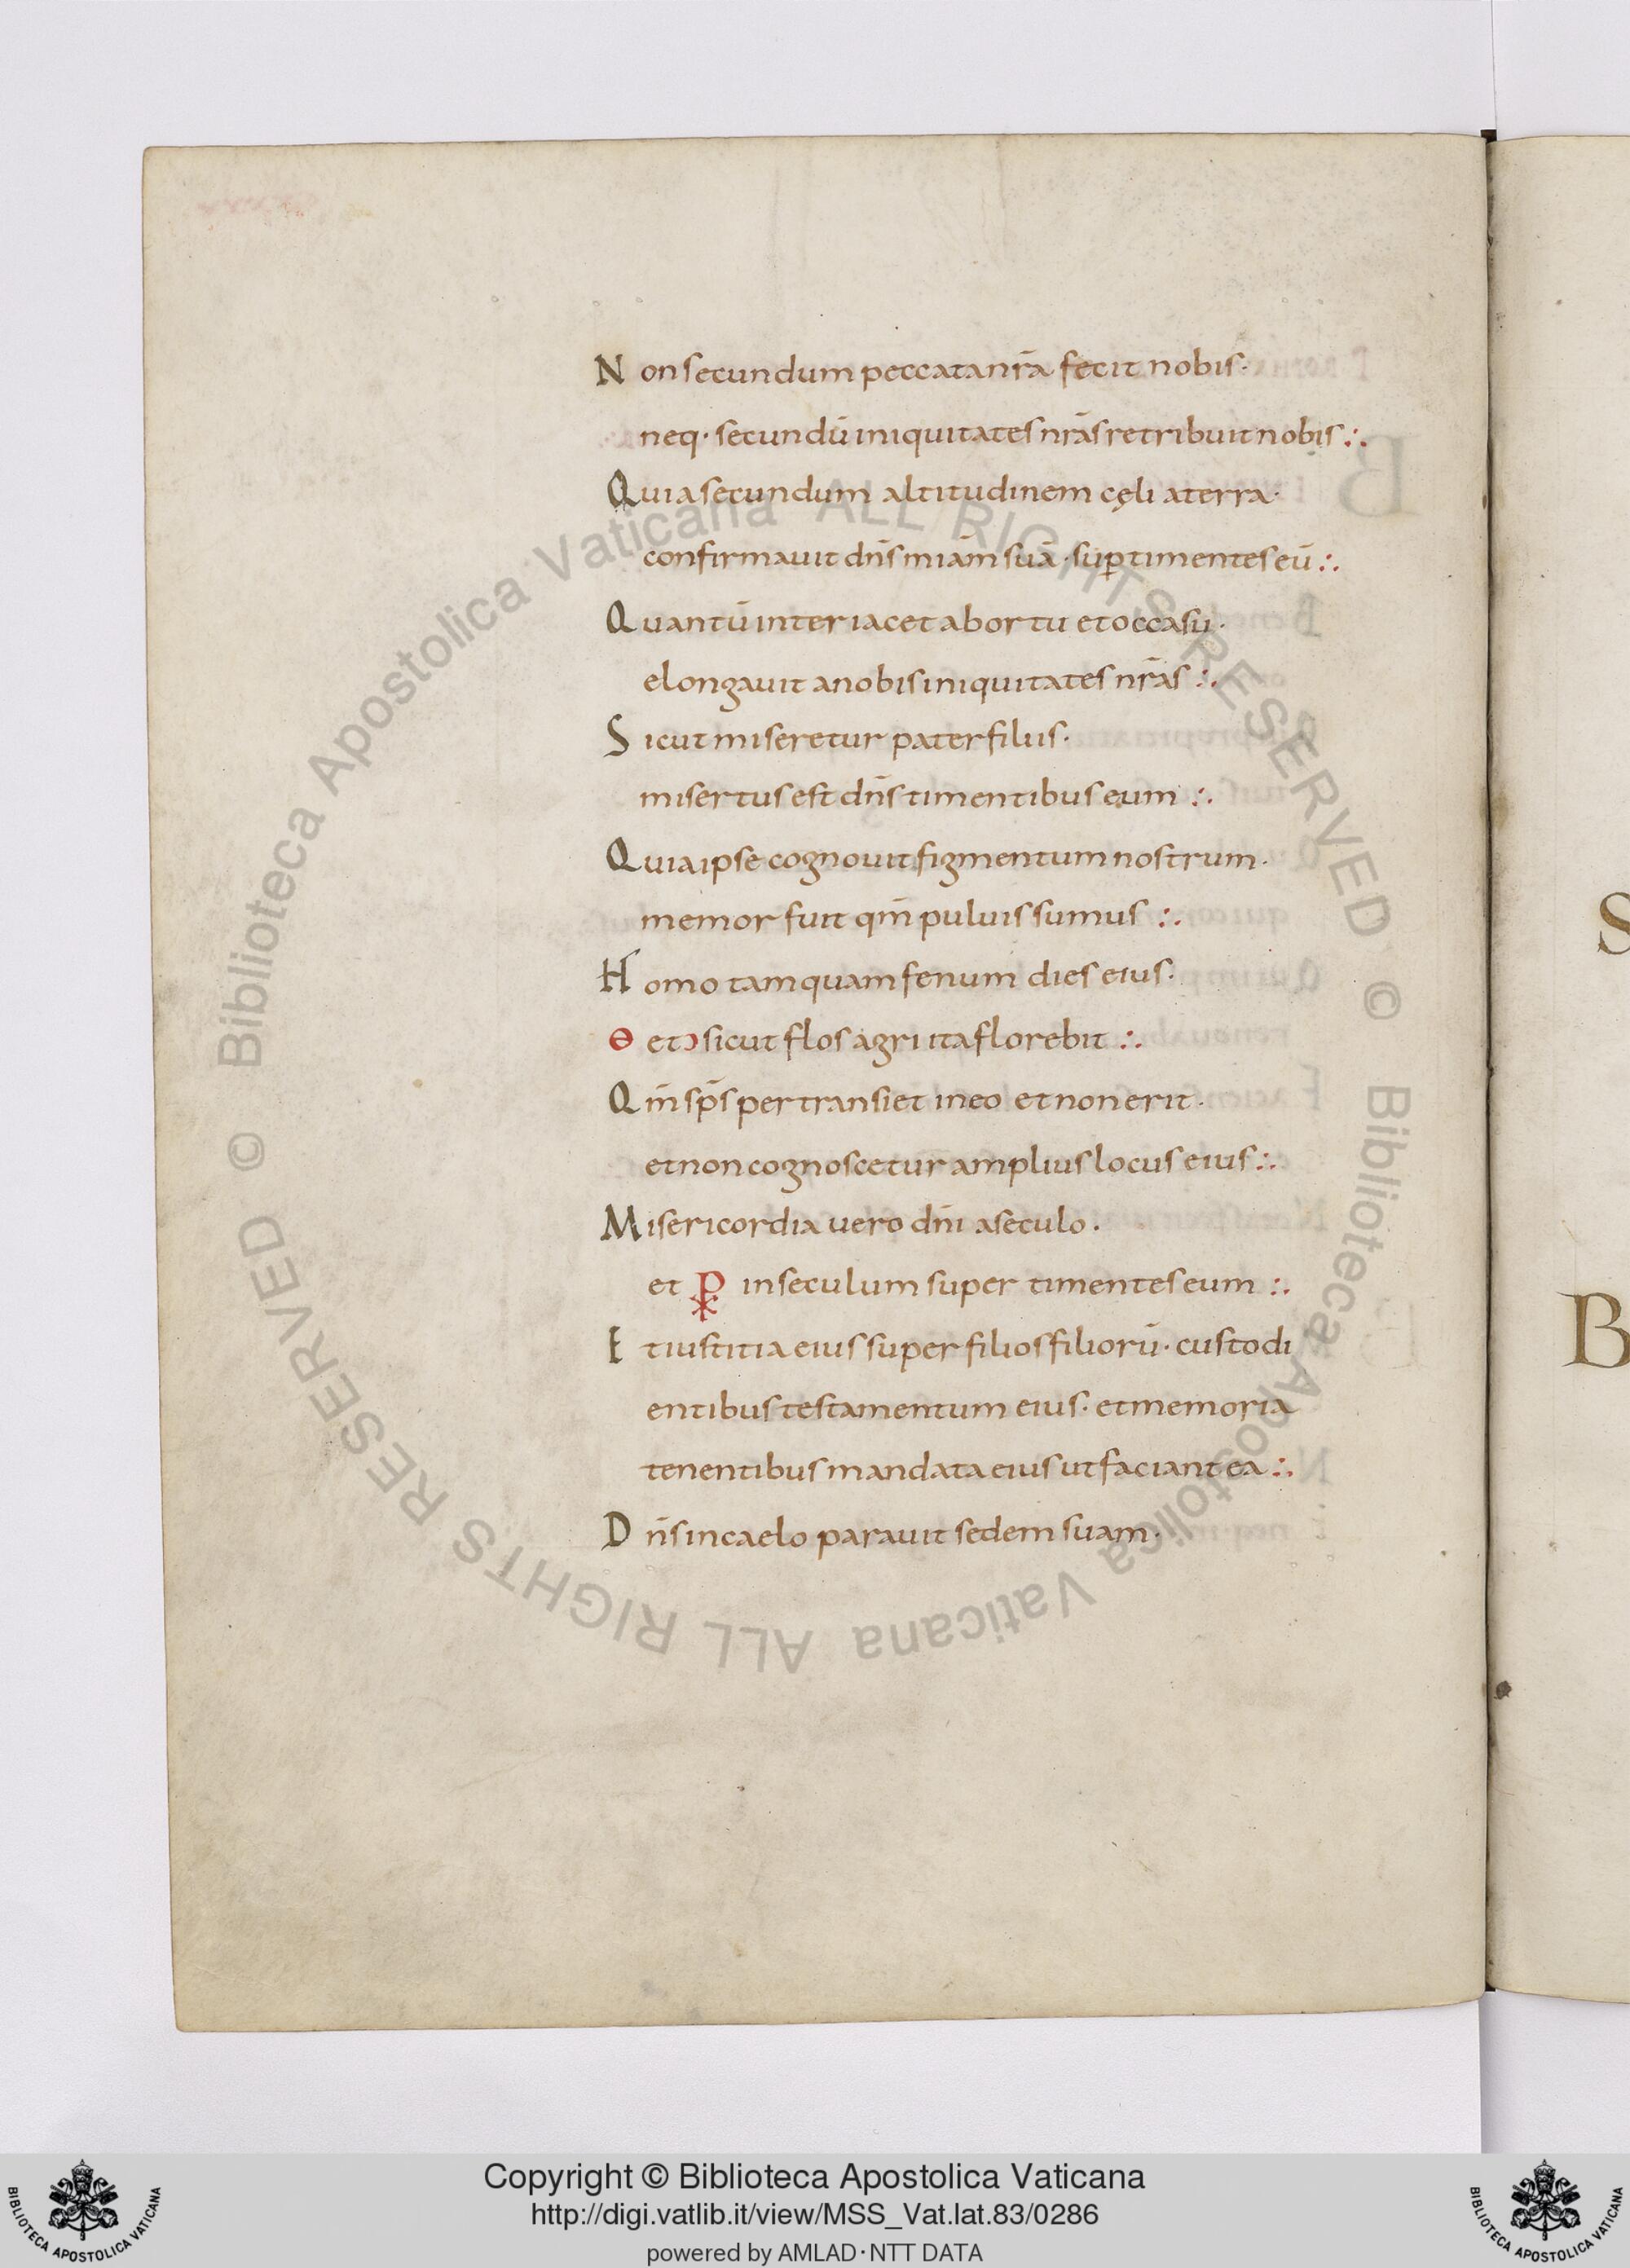 Non secundum peccata nr̄a fecit nobis·
neq· secundū iniquitates nr̄as retribuit nobis ∴
Quia secundum altitudinem cęli a terra·
confirmauit dn̄s miam̄ suā · sup̱ timentes eū ∴
Quantū inter iacet ab ortu et occasu·
elongauit a nobis iniquitates nr̄as ∴
Sicut miseretur pater filiis·
misertus est dn̄s timentibus eum ∴
Quia ipse cognouit figmentum nostrum·
memor fuit qm̄ puluis sumus ∴
Homo tamquam fenum dies eius·
Θ et ↄ sicut flos agri ita florebit ∴
Qm̄ sp̄s pertransiet in eo et non erit·
et non cognoscetur amplius locus eius ∴
Misericordia uero dn̄i a seculo·
et ⳩ in seculum super timentes eum ∴
Et iustitia eius super filios filiorū· custodi
entibus testamentum eius· et memoria
tenentibus mandata eius ut faciant ea ∴
Dn̄s in caelo parauit sedem suam·
S
B
© Biblioteca Apostolica Vaticana ALL RIGHTS RESERVED
© Biblioteca Apostolica Vaticana ALL RIGHTS RESERVED
Copyright © Biblioteca Apostolica Vaticana
http://digi.vatlib.it/view/MSS_Vat.lat.83/0286
powered by AMLAD·NTT DATA
BIBLIOTECA APOSTOLICA VATICANA
BIBLIOTECA APOSTOLICA VATICANA